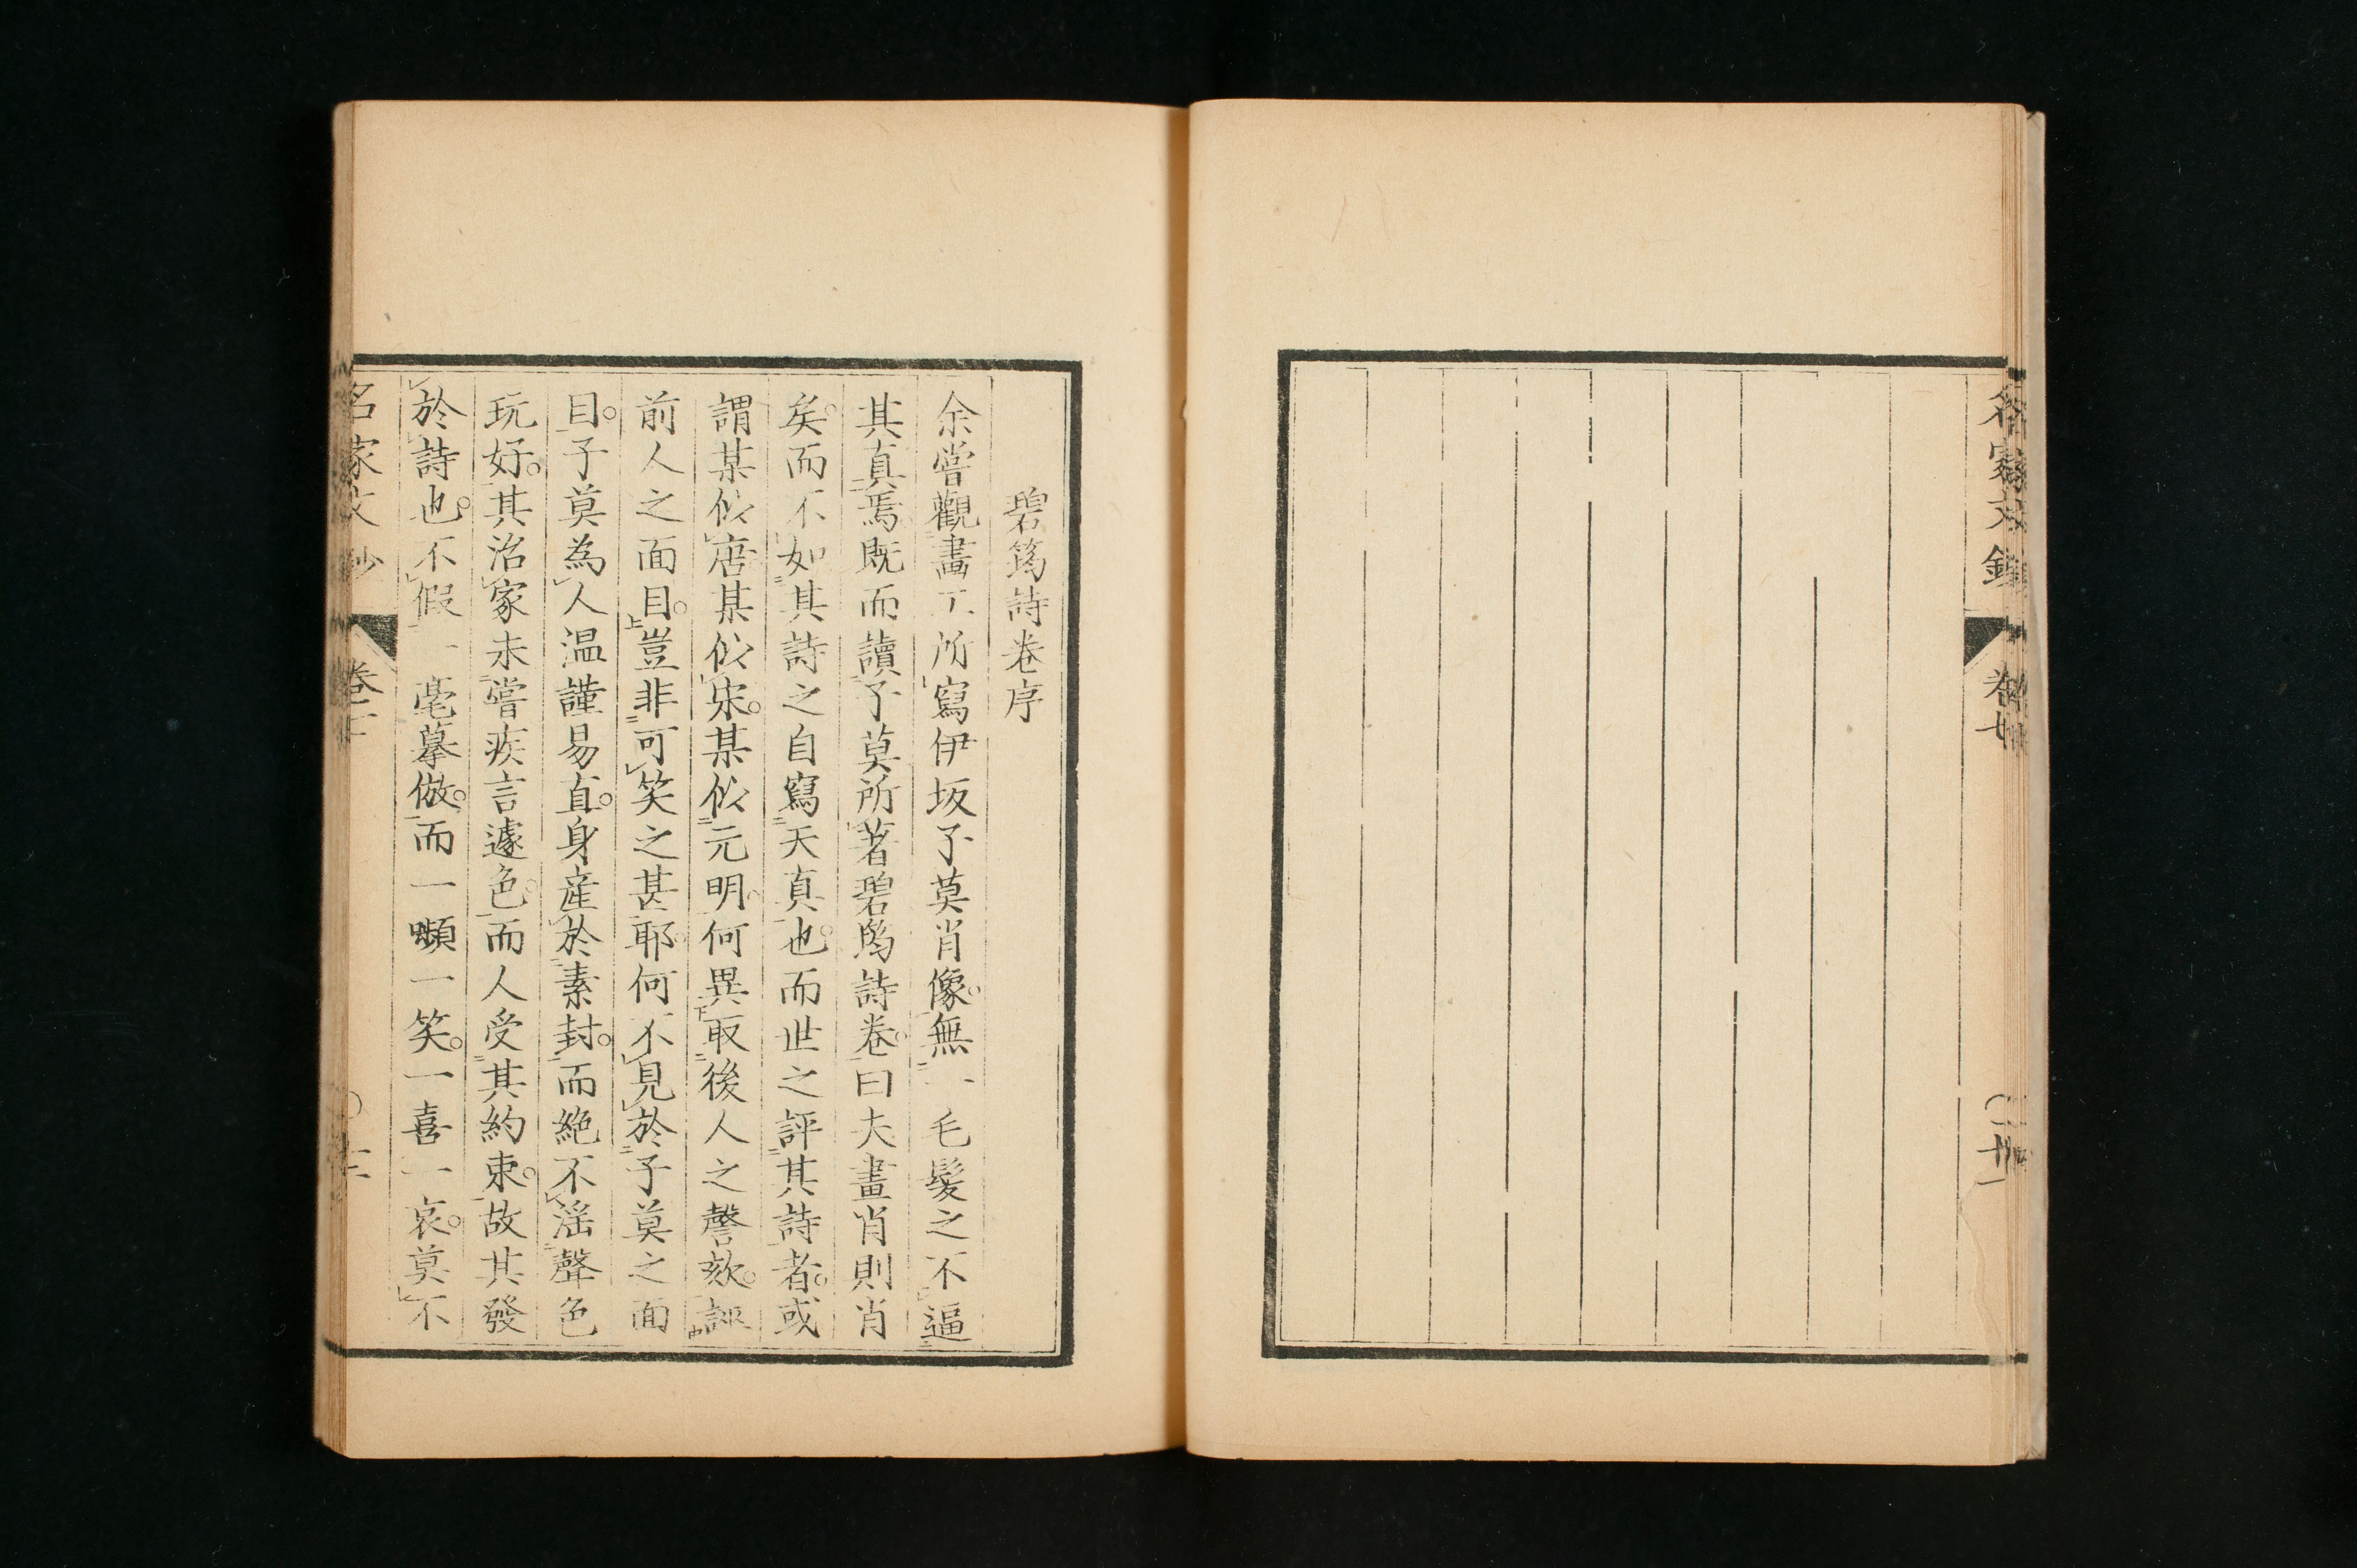 碧筠詩卷序
余嘗觀畫工所寫伊坂子莫肖像。無一毛髮之不逼
其真焉既而讀子莫所著碧筠詩卷。曰夫畫肖則肖
矣。而不如其詩之自寫天真也。而世之評其詩者。或
謂某似唐某似宋。某似元明。何異取後人之謦欬。誣
前人之面目。豈非可笑之甚耶。何不見於子莫之面
目。子莫為人温謹易直。身産於素封。而絶不滛聲色
玩好。其治家未嘗疾言遽色。而人受其約束。故其發
於詩也。不假一毫摹倣。而一嚬一笑。一喜一哀。莫不
名家文抄